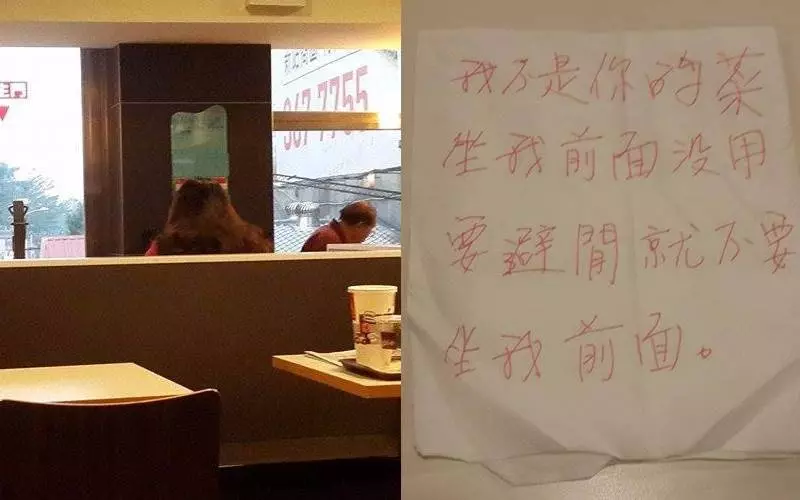 367-7755
我不是你的菜
坐我前面没用
要避開就不要
坐我前面。